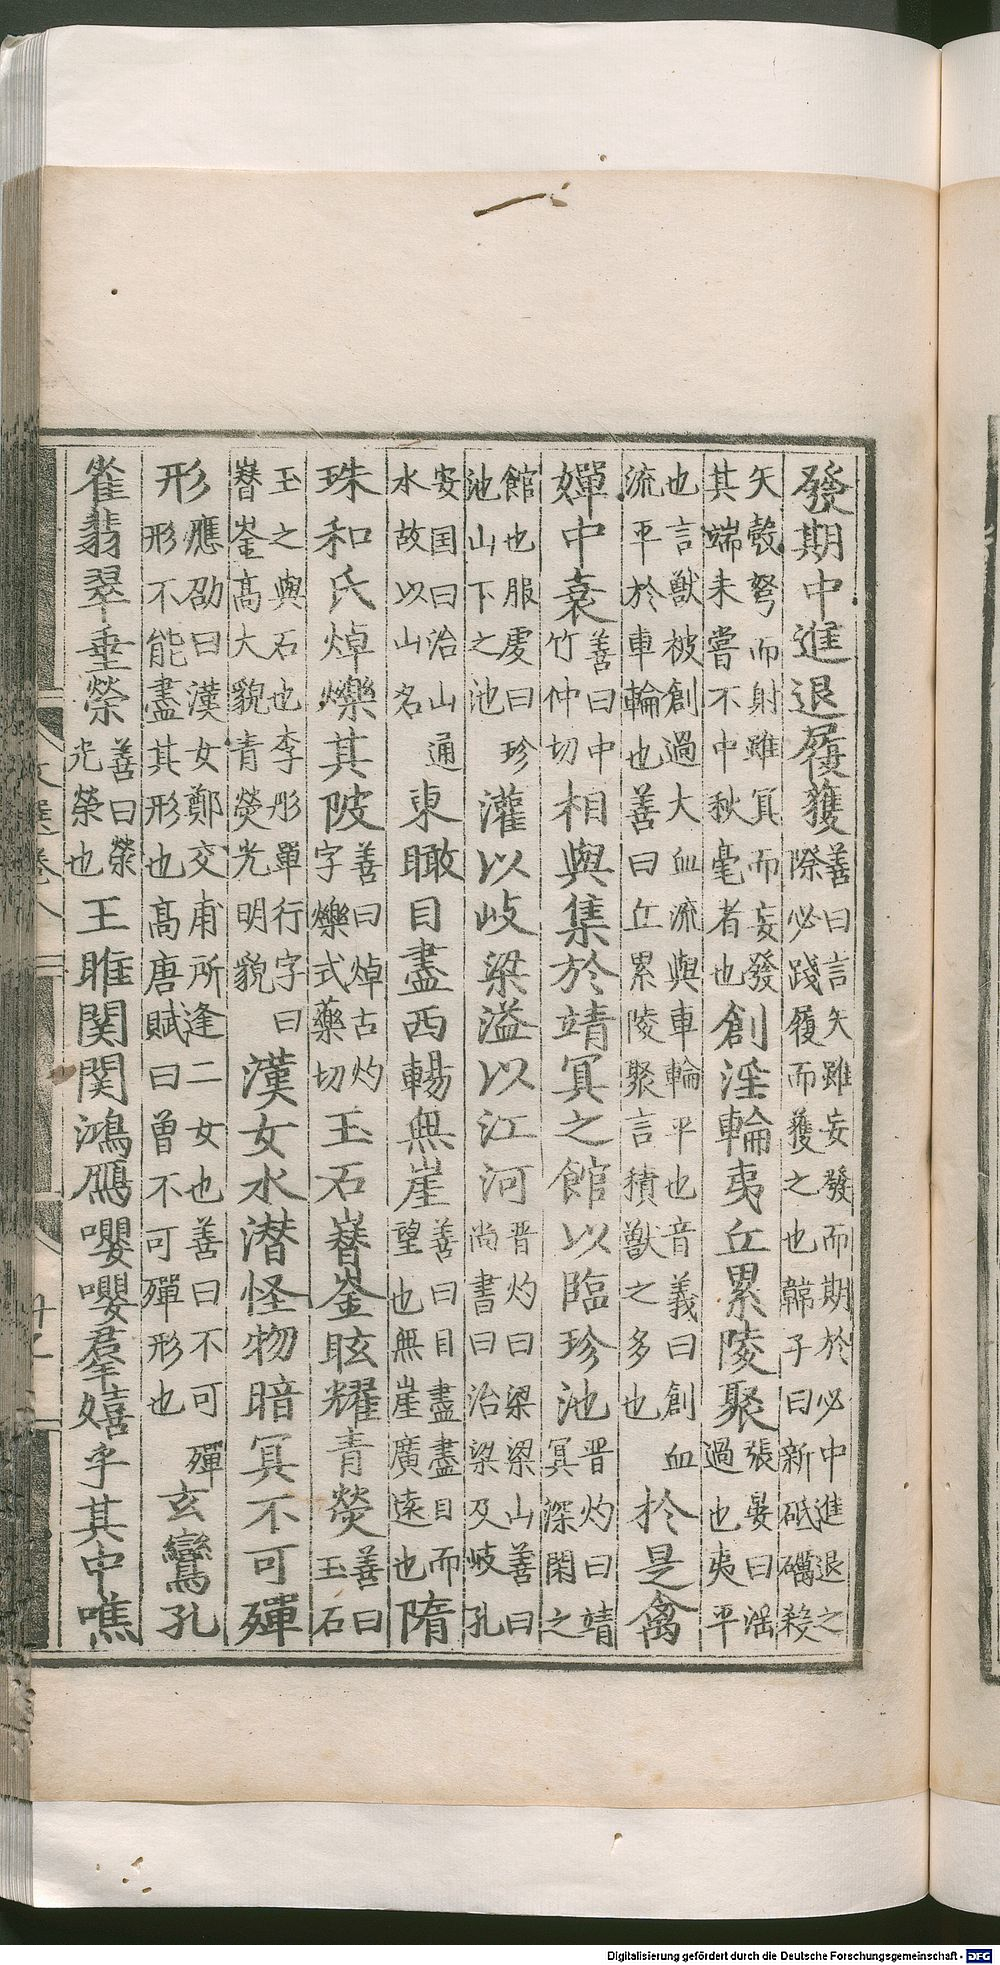 發期中進退履獲善曰言矢雖妄發而期於必中進退之際必踐履而獲之也韓子曰新砥礪殺
矢彀弩而射雖冥而妄發其端未嘗不中秋毫者也創淫輪夷丘累陵聚張晏曰淫過也夷平
也言獸被創過大血流與車輪平也音義曰創血流平於車輪也善曰丘累陵聚言積獸之多也於是禽
殫中衰善曰中竹仲切相與集於靖冥之館以臨珍池晋灼曰靖冥深閑之
館也服䖍曰珍池山下之池灌以岐梁溢以江河晋灼曰梁梁山善曰尚書曰治梁及岐孔
安国曰治山通水故以山名東瞰目盡西暢無崖善曰目盡盡目而望也無崖廣遠也隋
珠和氏焯爍其陂善曰焯古灼字爍式藥切玉石嶜崟眩耀青熒善曰玉石
玉之與石也李彤單行字曰嶜崟高大貌青熒光明貌漢女水潜怪物暗冥不可殫
形應劭曰漢女鄭交甫所逢二女也善曰不可殫形不能盡其形也高唐賦曰曾不可殫形也玄鸞孔
雀翡翠垂榮善曰榮光榮也王雎関関鴻鴈嚶嚶羣嬉乎其中噍
文選卷八
Digitalisierung gefördert durch die Deutsche Forschungsgemeinschaft - DFG